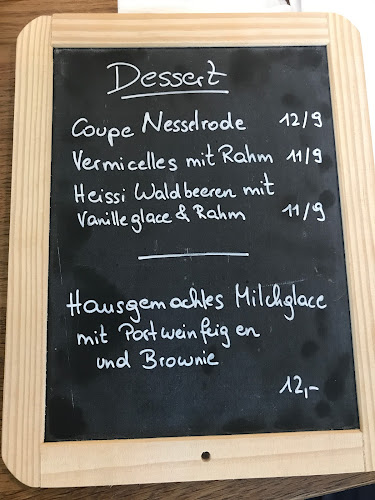 Dessert
Coupe Nesselrode 12/9
Vermicelles mit Rahm 11/9
Heissi Waldbeeren mit
Vanilleglace & Rahm 11/9
Hausgemachtes Milchglace
mit Portweinfeigen
und Brownie
12,-